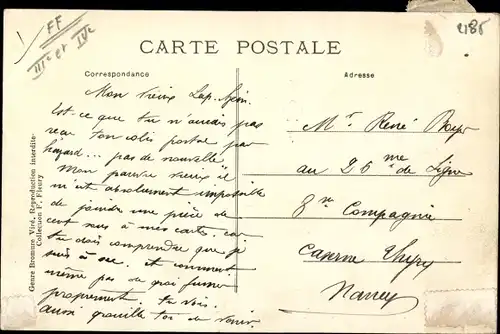 FF
IIIe et IVe
2185
CARTE POSTALE
Correspondance
Adresse
Mon vieux
Est-ce que tu n'aurais pas
reçu ton colis postal par
hazard... pas de nouvelle
Mon pauvre vieux il
m'est absolument impossible
de joindre une pièce de
cent sous à mes cartes. car
tu dois comprendre que je
suis à sec. et comment
même pas de quoi fumer
proprement. tu vois.
aussi grouille toi de venir.
Mr. René
au 26me de Ligne
Compagnie
Caserne Thiry
Nancy
Genre Bromure Viré, Reproduction interdite.
Collection P. Fleury